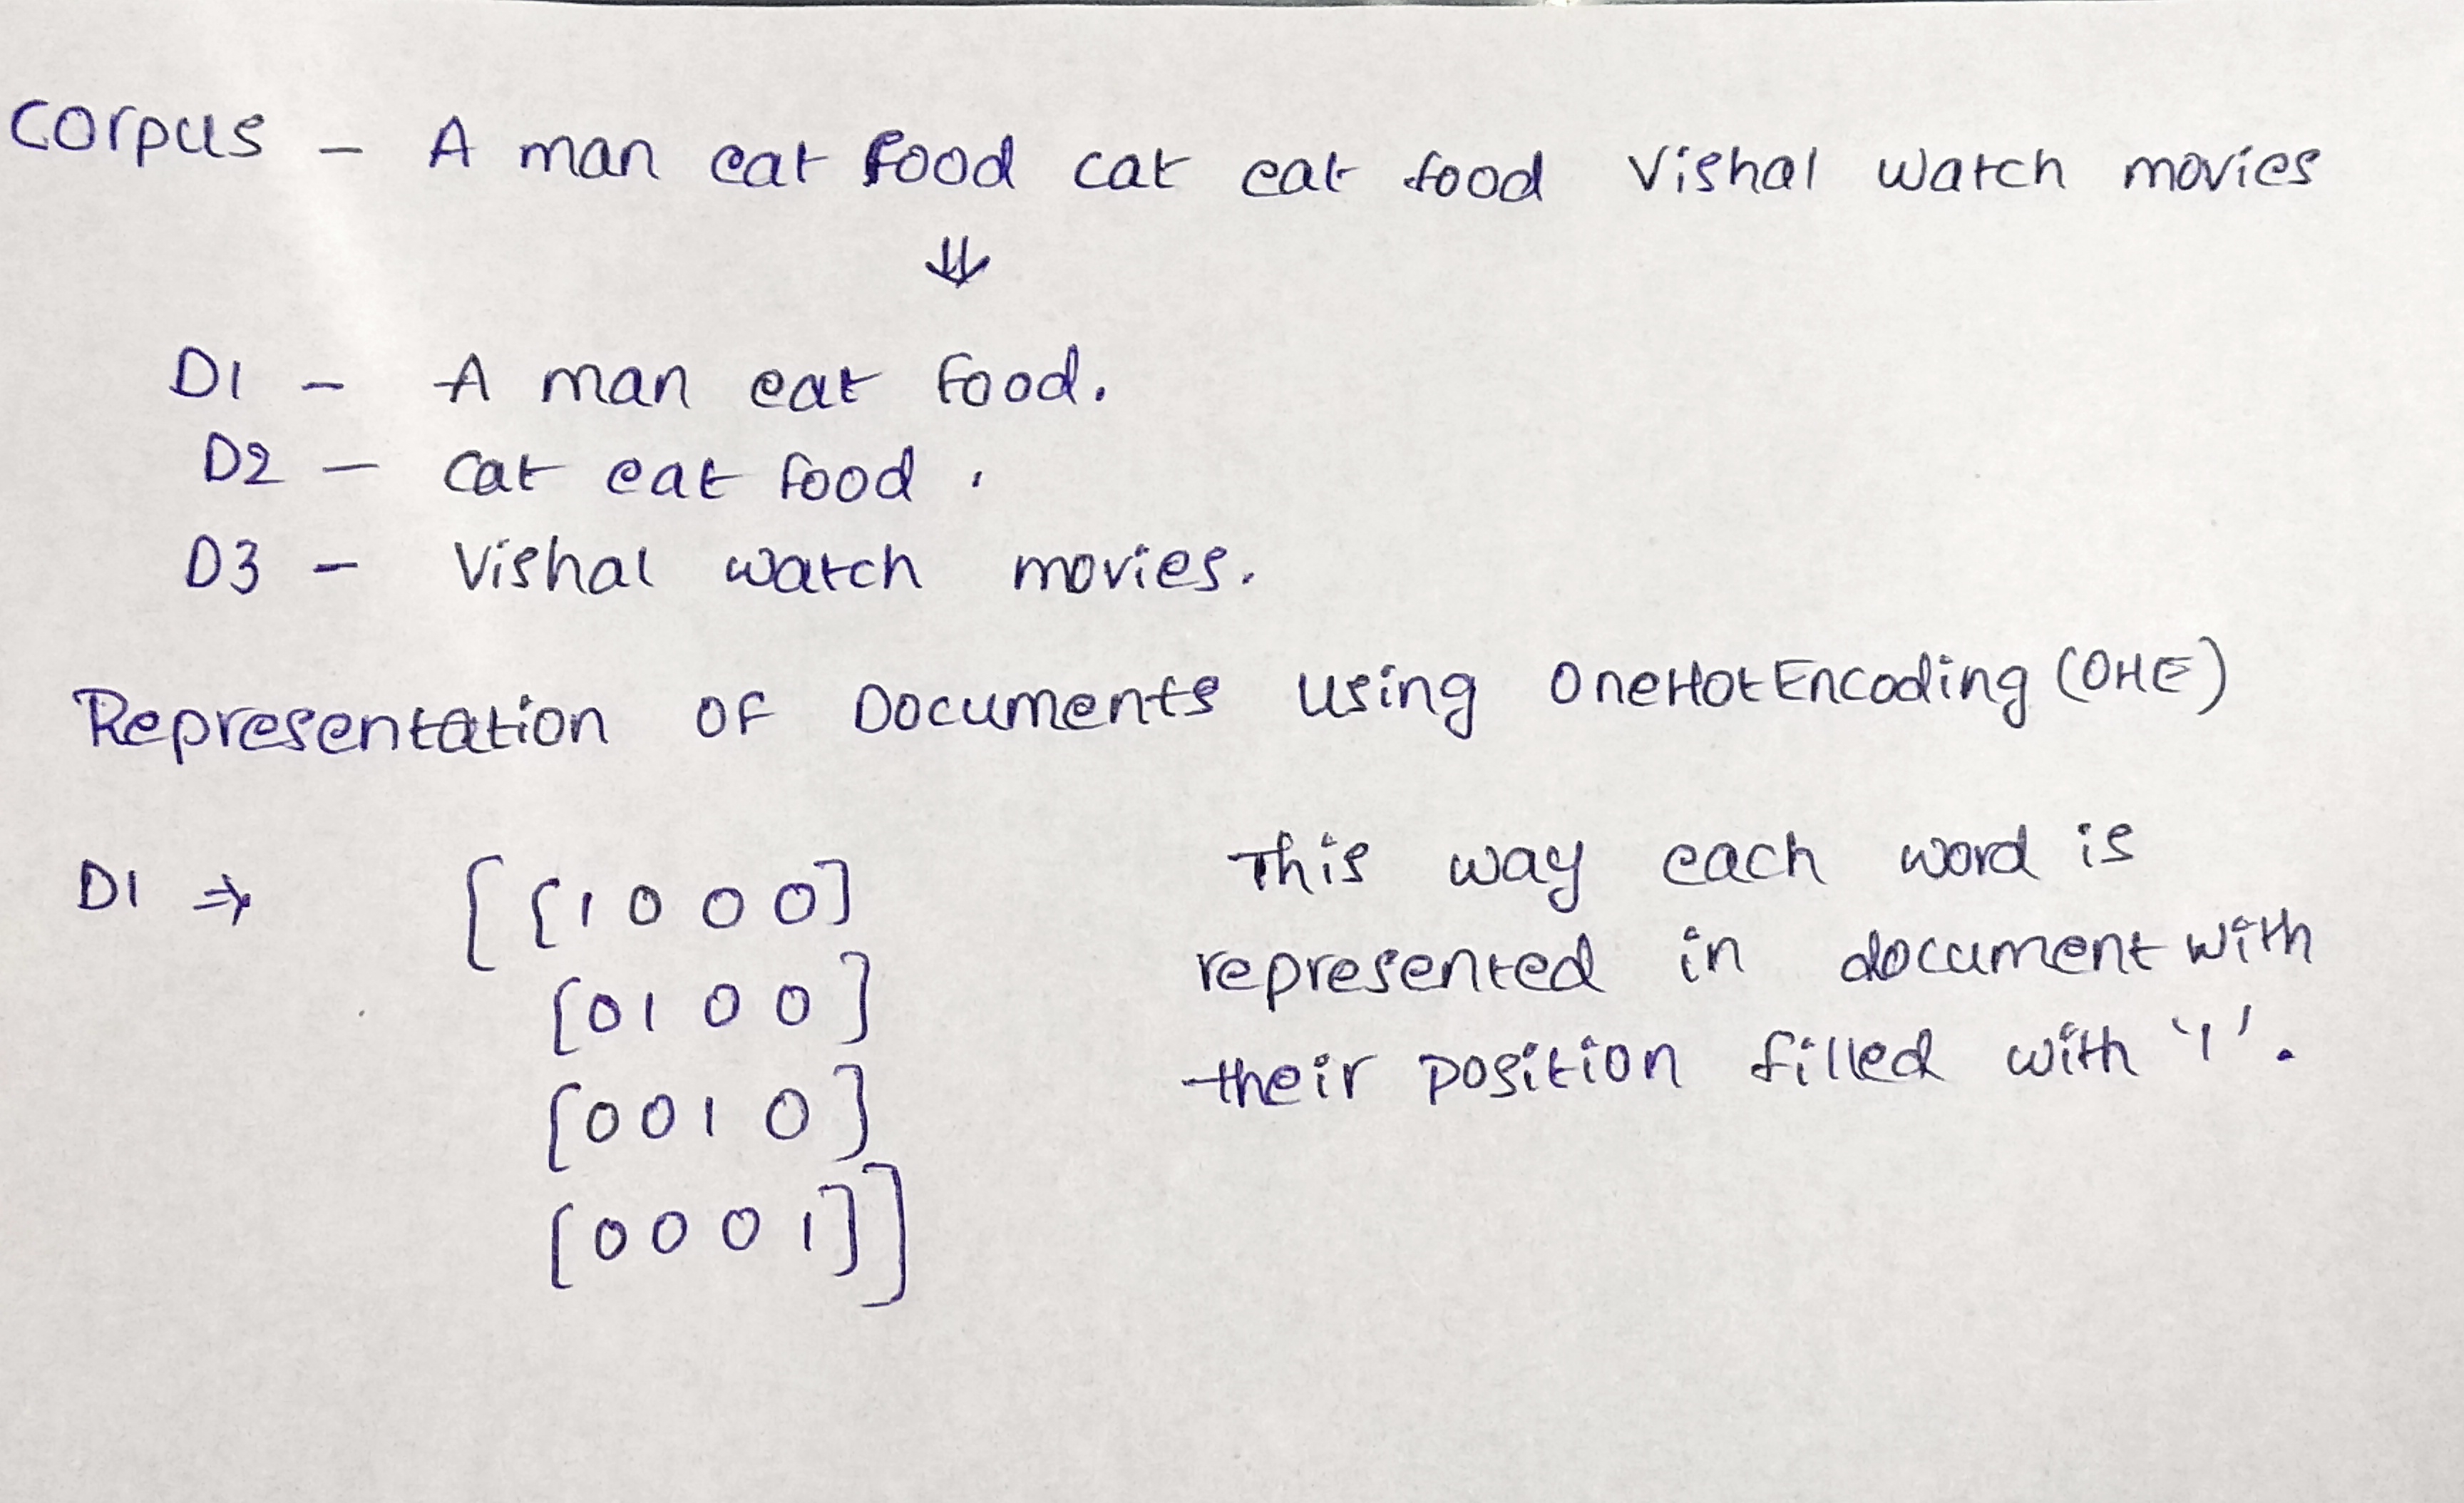 Corpus - A man eat food cat eat food Vishal watch movies
⇓
D1 - A man eat food.
D2 - Cat eat food.
D3 - Vishal watch movies.
Representation of Documents using OneHotEncoding (OHE)
D1 ⇒ [[1 0 0 0]
[0 1 0 0]
[0 0 1 0]
[0 0 0 1]]
This way each word is
represented in document with
their position filled with '1'.